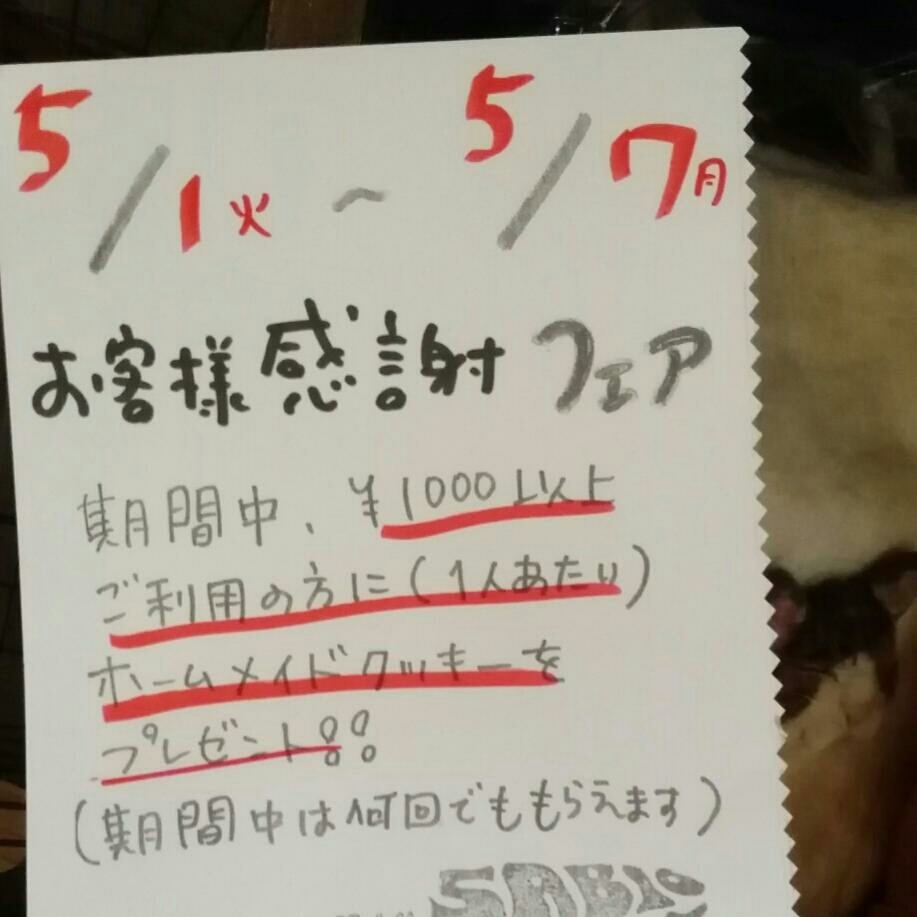 5/1火～5/7月
お客様感謝フェア
期間中、¥1000以上
ご利用の方に(1人あたり)
ホームメイドクッキーを
プレゼント!!
(期間中は何回でももらえます)